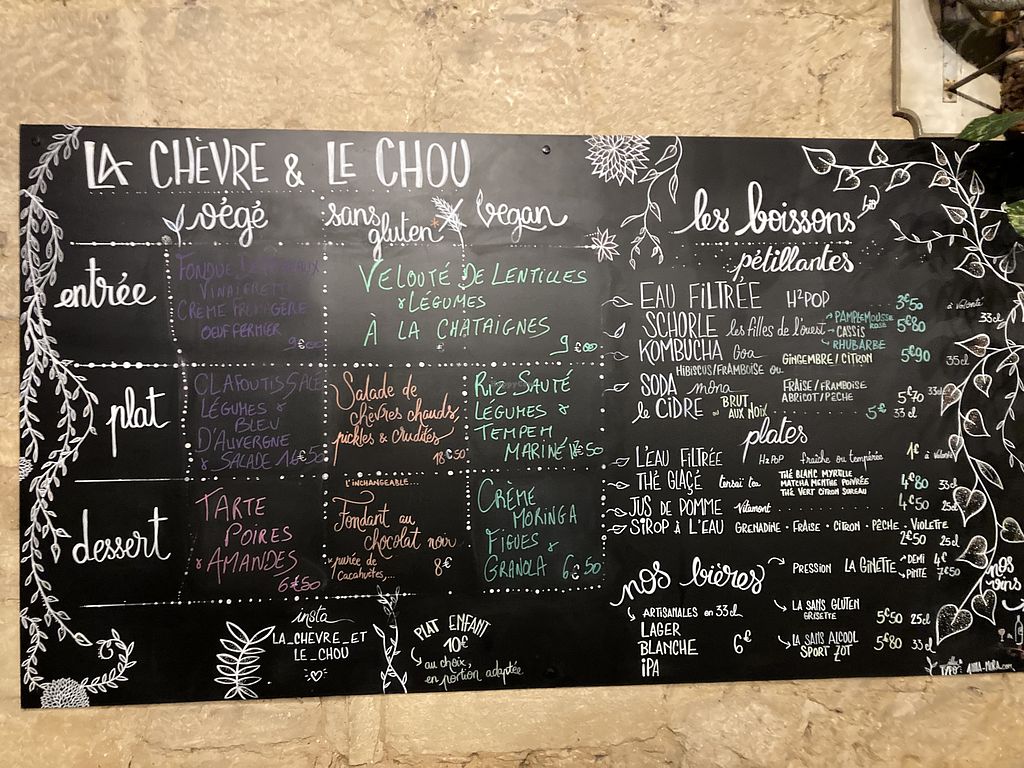 LA CHÈVRE & LE CHOU
végé
sans gluten
vegan
entrée
FONDUE
VINAIGRETTE
CRÈME FROMAGÈRE
OEUF FERMIER
9€00
VELOUTÉ DE LENTILLES
& LÉGUMES
À LA CHATAIGNES
9€00
plat
CLAFOUTIS SALÉ
LÉGUMES &
BLEU
D'AUVERGNE
& SALADE
Salade de
chèvres chauds,
pickles & crudités
18€50
RIZ SAUTÉ
LÉGUMES &
TEMPEH
MARINÉ
dessert
TARTE
POIRES
& AMANDES
6€50
L'INCHANGEABLE...
Fondant au
chocolat noir
purée de
cacahuètes,...
8€
CRÈME
MORINGA
FIGUES &
GRANOLA 6€50
insta
LA_CHEVRE_ET
LE_CHOU
PLAT ENFANT
10€
au choix,
en portion adaptée
les boissons
pétillantes
EAU FILTRÉE H²POP 3€50 à volonté
33cl
SCHORLE les filles de l'ouest PAMPLEMOUSSE ROSE
CASSIS 5€80
RHUBARBE
KOMBUCHA Goa GINGEMBRE/CITRON 5€90 35cl
HIBISCUS/FRAMBOISE ou
SODA mona FRAISE/FRAMBOISE
ABRICOT/PÊCHE 5€70 33cl
le CIDRE BRUT
ou AUX NOIX 5€ 33cl
plates
L'EAU FILTRÉE H2POP fraîche ou tempérée 1€ à volonté
THÉ GLAÇÉ THÉ BLANC MYRTILLE
MATCHA MENTHE POIVRÉE 4€80 33cl
THÉ VERT CITRON SUREAU
JUS DE POMME Vitamont 4€50 25cl
SIROP À L'EAU GRENADINE • FRAISE • CITRON • PÊCHE • VIOLETTE
2€50 25cl
nos bières
PRESSION LA GINETTE DEMI 4€
PINTE 7€50
ARTISANALES en 33cl
LAGER
BLANCHE 6€
IPA
LA SANS GLUTEN
GRISETTE 5€50 25cl
LA SANS ALCOOL
SPORT ZOT 5€80 33cl
nos
vins